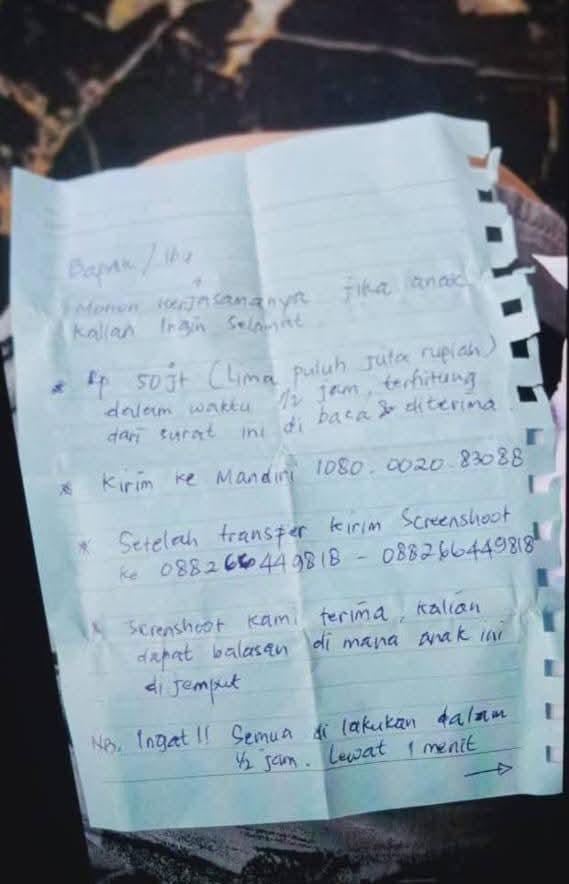 Bapak / Ibu
Mohon kerjasamanya jika anak
kalian Ingin Selamat
* Rp 50 jt (Lima puluh Juta rupiah)
dalam waktu 1/2 jam, terhitung
dari surat ini di baca & diterima.
* Kirim ke Mandiri 1080.0020.83088
* Setelah transfer kirim Screenshoot
ke 088266449818 - 088266449818
* Screnshoot kami terima, kalian
dapat balasan di mana anak ini
di jemput
NB. Ingat!! Semua di lakukan dalam
1/2 jam. Lewat 1 menit
→